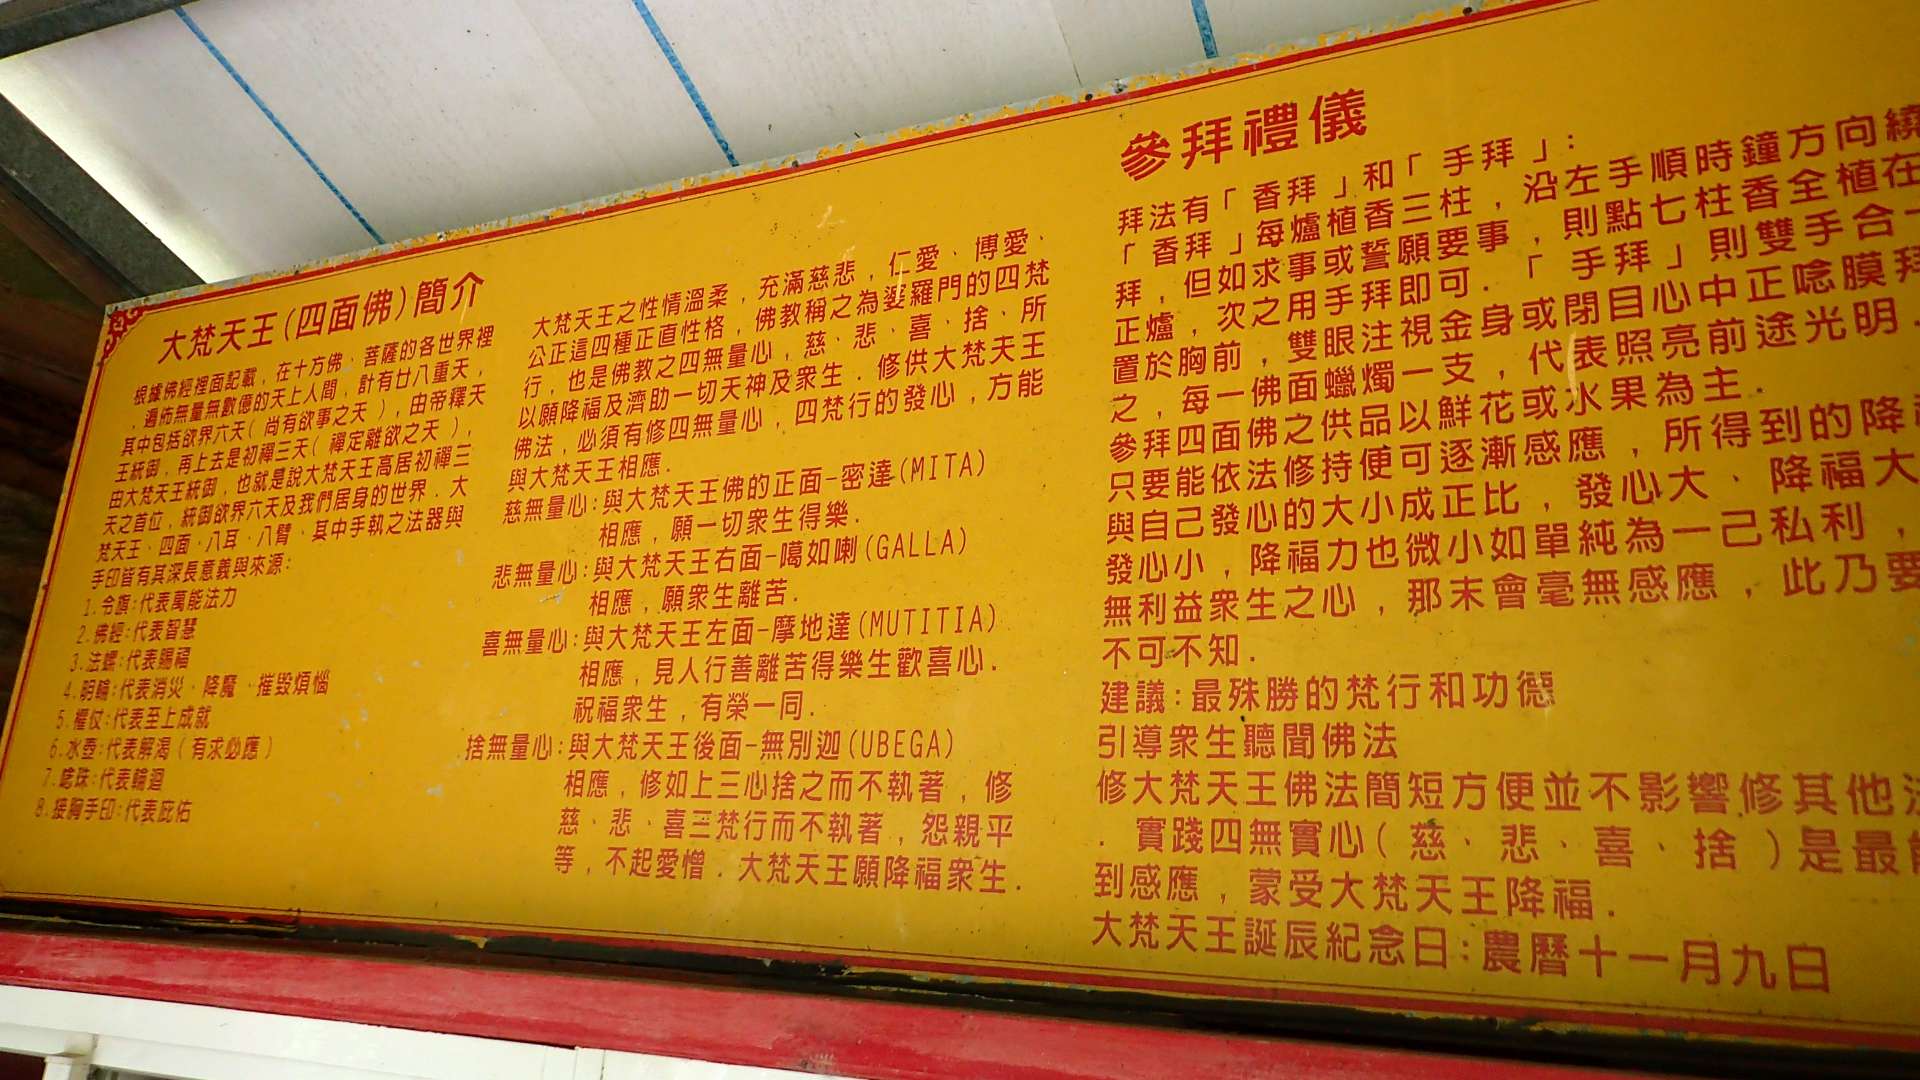 大梵天王(四面佛)簡介
根據佛經裡面記載，在十方佛、菩薩的各世界裡
，遍佈無量無數億的天上人間，計有廿八重天，
其中包括欲界六天(尚有欲事之天)，由帝釋天
王統御，再上去是初禪三天(禪定離欲之天)，
由大梵天王統御，也就是說大梵天王高居初禪三
天之首位，統御欲界六天及我們居身的世界．大
梵天王、四面、八耳、八臂、其中手執之法器與
手印皆有其深長意義與來源:
1.令旗:代表萬能法力
2.佛經:代表智慧
3.法螺:代表賜福
4.明輪:代表消災、降魔、摧毀煩惱
5.權杖:代表至上成就
6.水壺:代表解渴(有求必應)
7.唸珠:代表輪迴
8.接胸手印:代表庇佑
大梵天王之性情溫柔，充滿慈悲，仁愛、博愛、
公正這四種正直性格，佛教稱之為婆羅門的四梵
行，也是佛教之四無量心，慈、悲、喜、捨、所
以願降福及濟助一切天神及衆生．修供大梵天王
佛法，必須有修四無量心，四梵行的發心，方能
與大梵天王相應．
慈無量心:與大梵天王佛的正面-密達(MITA)
相應，願一切衆生得樂．
悲無量心:與大梵天王右面-噶如喇(GALLA)
相應，願衆生離苦．
喜無量心:與大梵天王左面-摩地達(MUTITIA)
相應，見人行善離苦得樂生歡喜心．
祝福衆生，有榮一同．
捨無量心:與大梵天王後面-無別迦(UBEGA)
相應，修如上三心捨之而不執著，修
慈、悲、喜三梵行而不執著，怨親平
等，不起愛憎．大梵天王願降福衆生．
參拜禮儀
拜法有「香拜」和「手拜」:
「香拜」每爐植香三柱，沿左手順時鐘方向繞
拜，但如求事或誓願要事，則點七柱香全植在
正爐，次之用手拜即可．「手拜」則雙手合十
置於胸前，雙眼注視金身或閉目心中正唸膜拜
之，每一佛面蠟燭一支，代表照亮前途光明．
參拜四面佛之供品以鮮花或水果為主．
只要能依法修持便可逐漸感應，所得到的降福
與自己發心的大小成正比，發心大、降福大
發心小，降福力也微小如單純為一己私利，
無利益衆生之心，那末會毫無感應，此乃要
不可不知．
建議:最殊勝的梵行和功德
引導衆生聽聞佛法
修大梵天王佛法簡短方便並不影響修其他法
．實踐四無實心(慈、悲、喜、捨)是最能
到感應，蒙受大梵天王降福．
大梵天王誕辰紀念日:農曆十一月九日